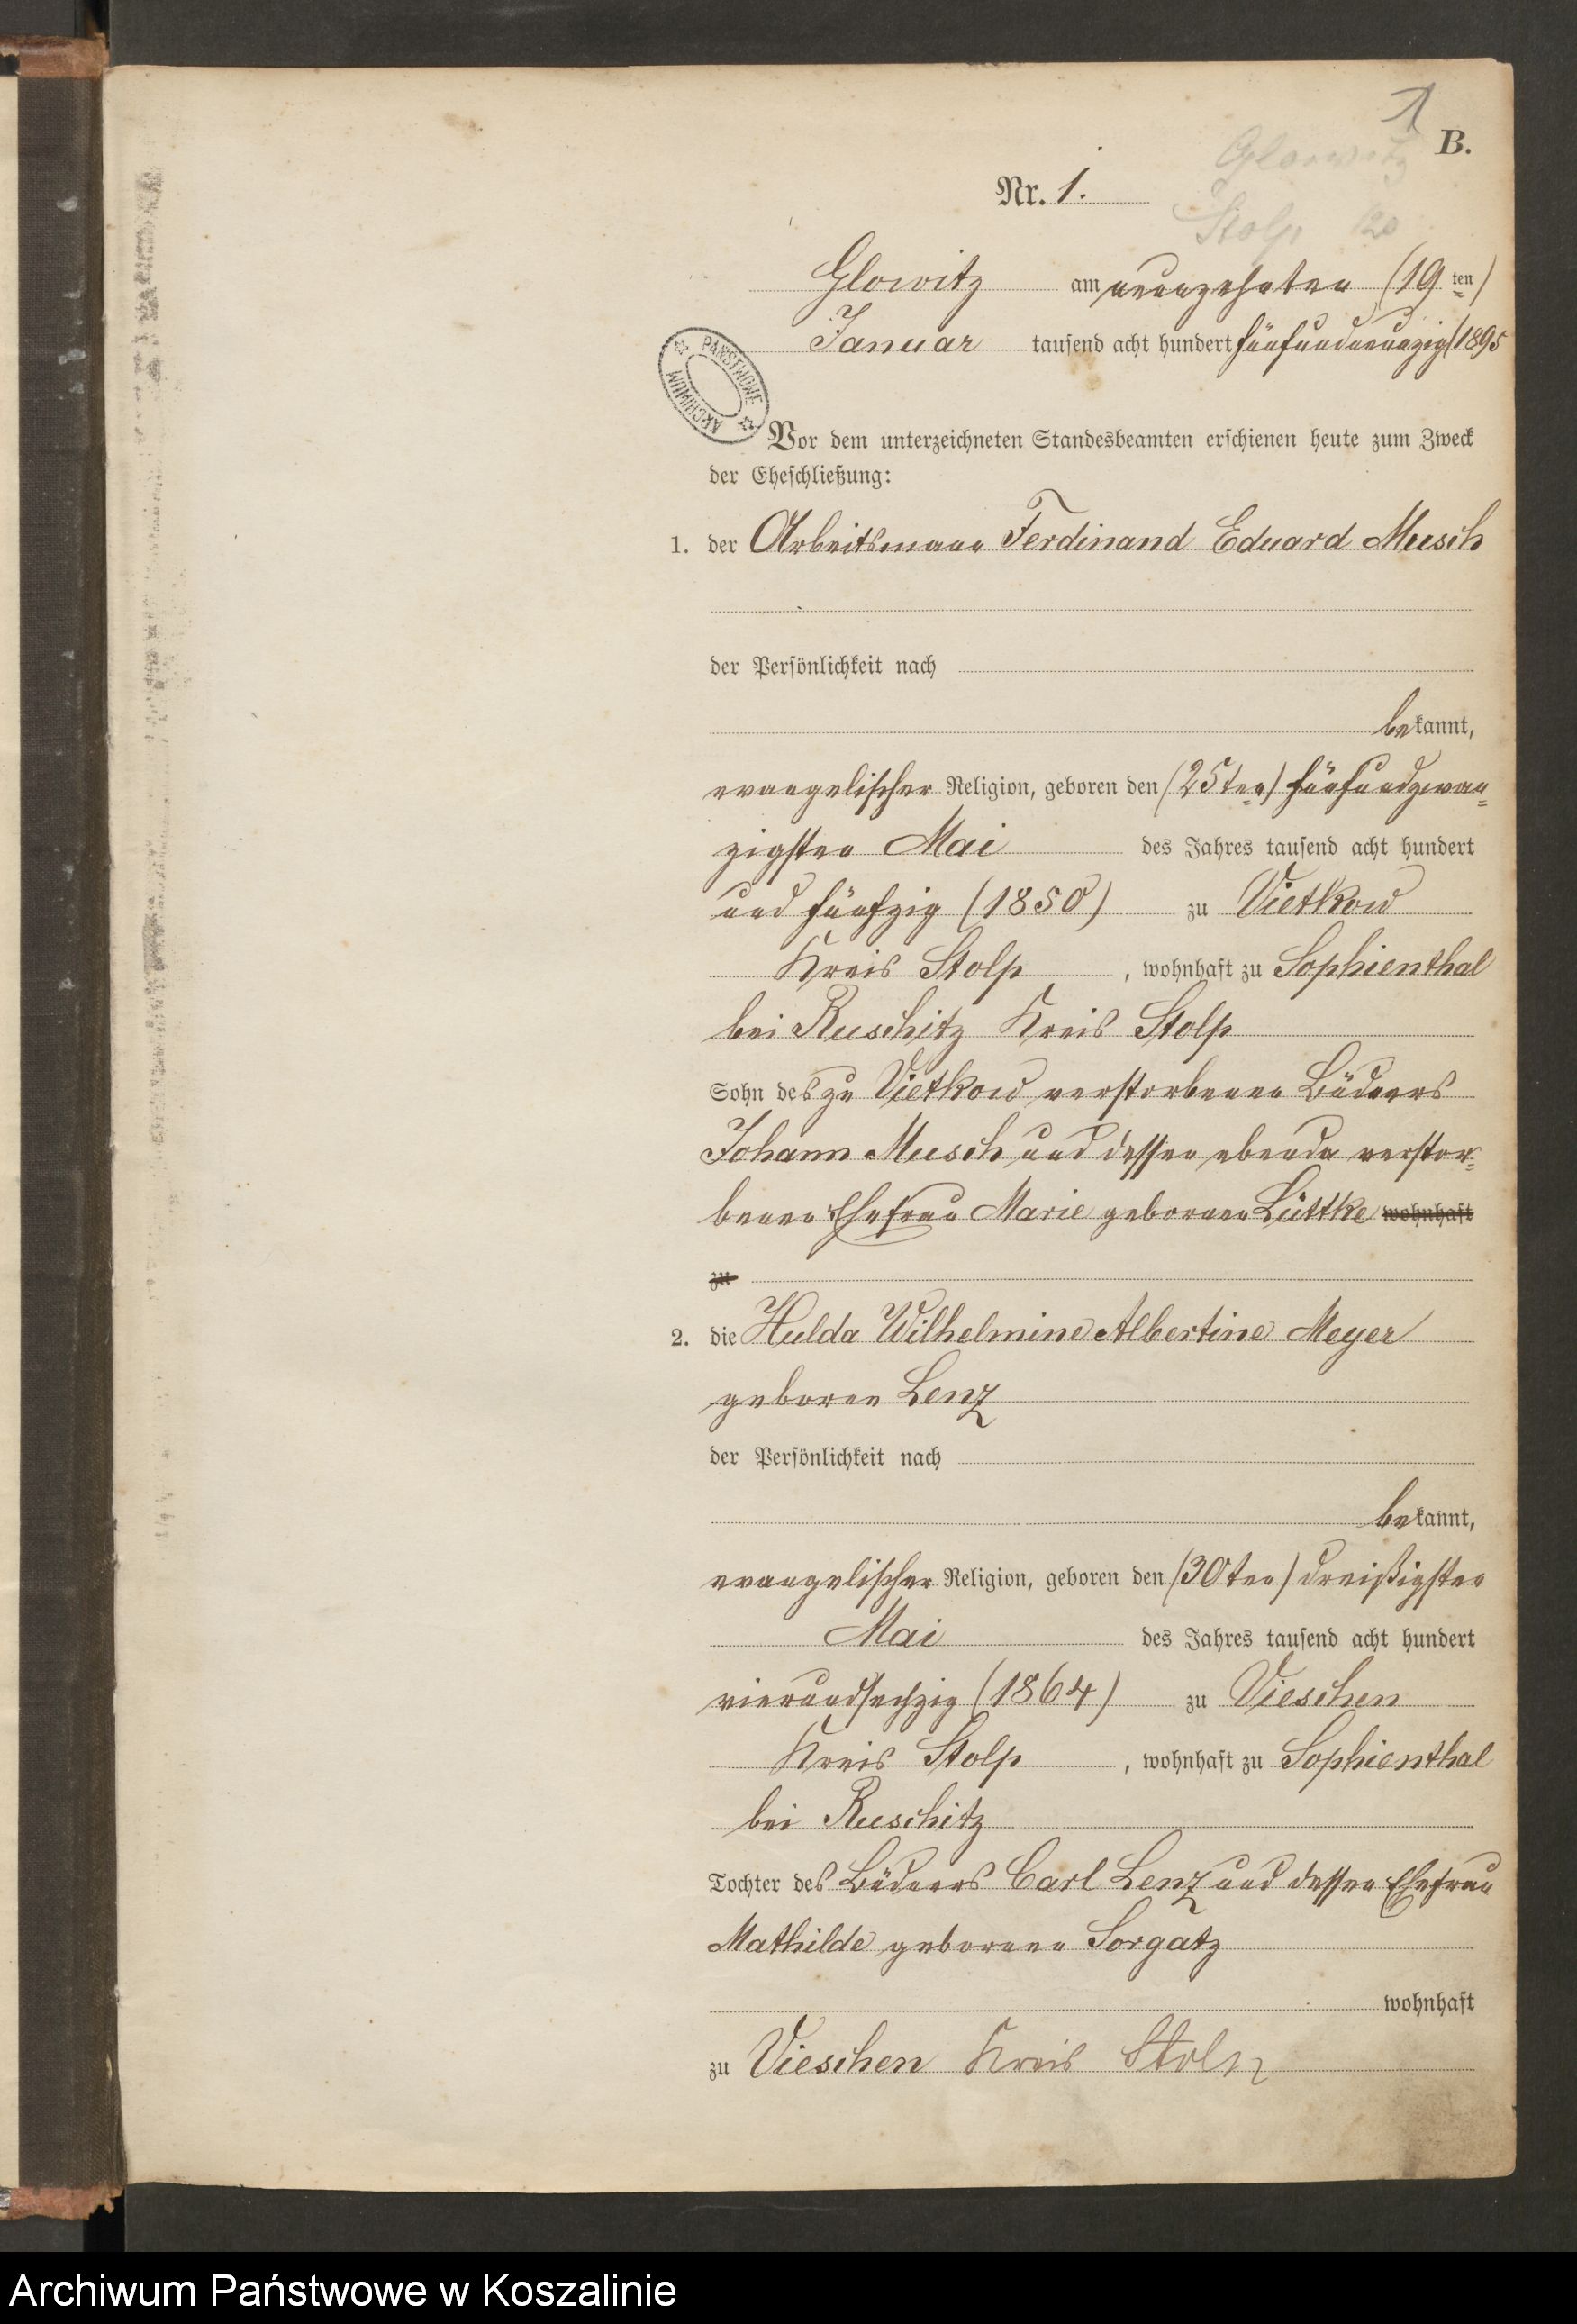 1
B.
Glowitz
Nr. 1.
Stolp 120
Glowitz am neunzehnten (19 ten)
Januar tausend acht hundert fünfundneunzig (1895
PAŃSTWOWE ARCHIWUM
Vor dem unterzeichneten Standesbeamten erschienen heute zum Zweck
der Eheschließung:
1. der Arbeitsmann Ferdinand Eduard Musch
der Persönlichkeit nach
bekannt,
evangelischer Religion, geboren den (25ten) fünfundzwan=
zigsten Mai des Jahres tausend acht hundert
und fünfzig (1850) zu Vietkow
Kreis Stolp, wohnhaft zu Sophienthal
bei Ruschitz Kreis Stolp
Sohn des zu Vietkow verstorbenen Büdners
Johann Musch und dessen ebenda verstor=
benen Ehefrau Marie geborenen Lüttke wohnhaft
zu
2. die Hulda Wilhelmine Albertine Meyer
geboren Lenz
der Persönlichkeit nach
bekannt,
evangelischer Religion, geboren den (30ten) dreißigsten
Mai des Jahres tausend acht hundert
vierundsechzig (1864) zu Vieschen
Kreis Stolp, wohnhaft zu Sophienthal
bei Ruschitz
Tochter des Büdners Carl Lenz und dessen Ehefrau
Mathilde geborenen Sorgatz
wohnhaft
zu Vieschen Kreis Stolp
Archiwum Państwowe w Koszalinie